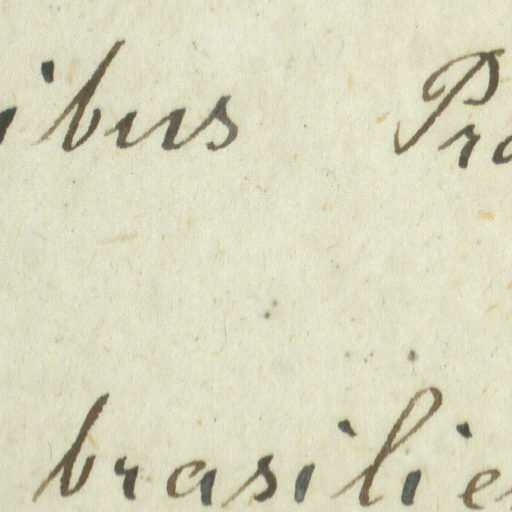 ibus Pro
brasilie